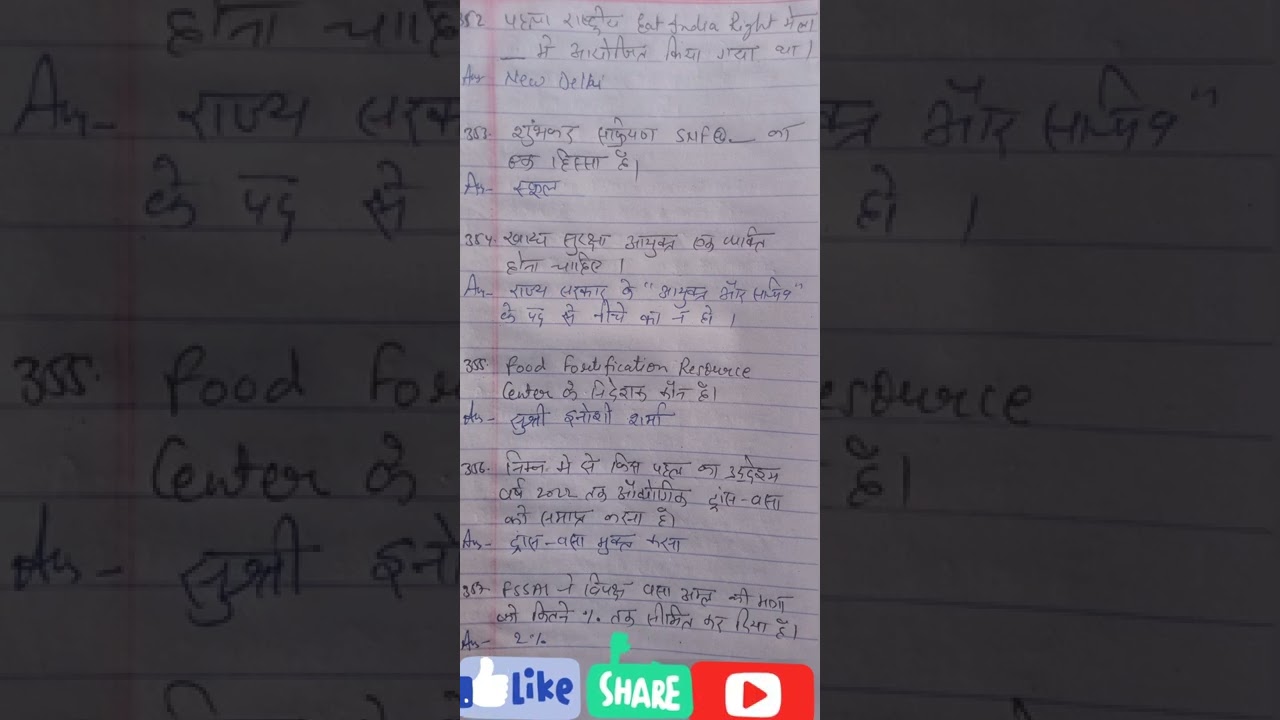 352. पहला राष्ट्रीय Eat India Right मेला
__ में आयोजित किया गया था।
An- New Delhi
353. SNF@__ का
एक हिस्सा है।
An- स्कूल
354. खाद्य सुरक्षा आयुक्त एक व्यक्ति
होना चाहिए।
An- राज्य सरकार के "आयुक्त और सचिव"
के पद से नीचे का न हो।
355. Food Fortification Resource
Center के निदेशक कौन है।
An- सुश्री इनोशी शर्मा
356. निम्न में से किस पहल का उद्देश्य
वर्ष 2022 तक औद्योगिक ट्रांस-वसा
को समाप्त करना है।
An- ट्रांस-वसा मुक्त करना
357. FSSAI ने विपक्ष वसा अम्ल की मात्रा
को कितने % तक सीमित कर दिया है।
An- 2%
Like SHARE